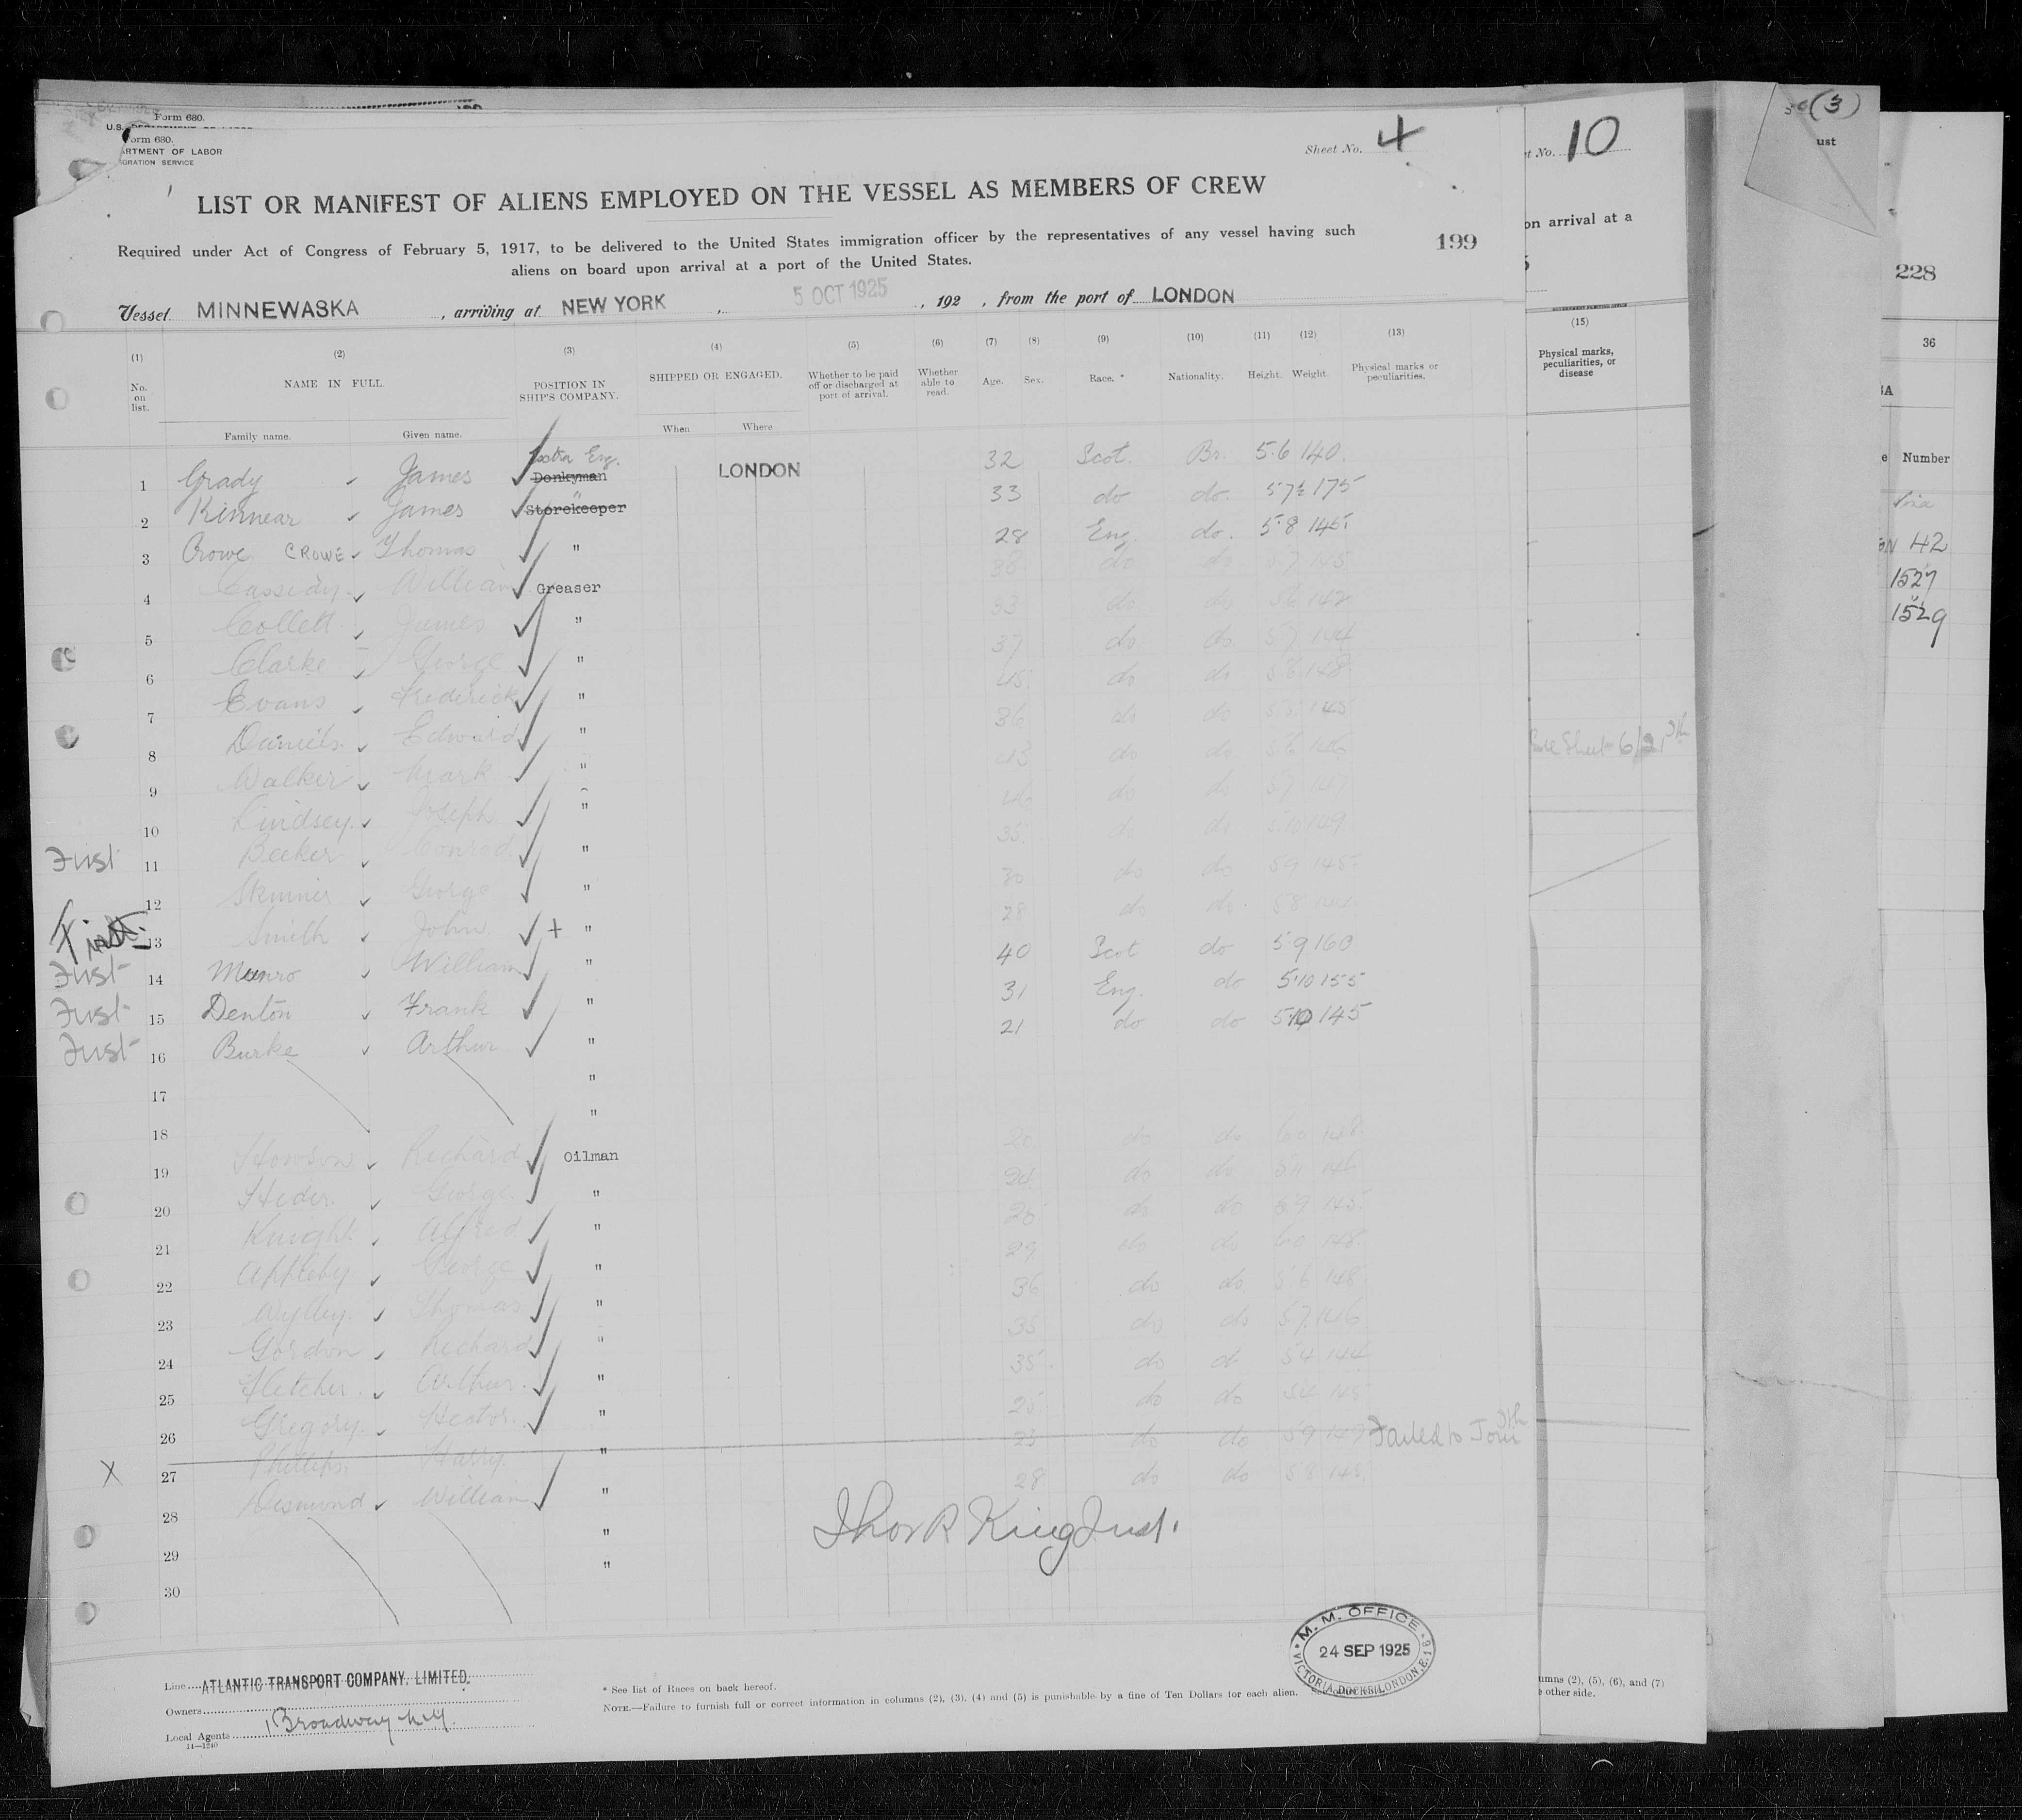 Form 680.
Form 680.
RTMENT OF LABOR
GRATION SERVICE
Sheet No. 4
LIST OR MANIFEST OF ALIENS EMPLOYED ON THE VESSEL AS MEMBERS OF CREW
Required under Act of Congress of February 5, 1917, to be delivered to the United States immigration officer by the representatives of any vessel having such
aliens on board upon arrival at a port of the United States.
199
Vessel MINNEWASKA, arriving at NEW YORK, 5 OCT 1925, 192 , from the port of LONDON
(1) (2) (3) (4) (5) (6) (7) (8) (9) (10) (11) (12) (13)
No. on list. NAME IN FULL. POSITION IN SHIP'S COMPANY. SHIPPED OR ENGAGED. Whether to be paid off or discharged at port of arrival. Whether able to read. Age. Sex. Race. * Nationality. Height. Weight. Physical marks or peculiarities.
Family name. Given name. When Where
1 Grady James Extra Eng. Donkyman LONDON 32 Scot. Br. 5.6 140.
2 Kinnear James " Storekeeper 33 do do. 5 7½ 175
3 Crowe CROWE Thomas " 28 Eng. do. 5.8 145.
4 Cassidy William Greaser 38 do do 5.7 145
5 Collett James " 33 do do 5.6 142
6 Clarke George " 37 do do 5.7 144
7 Evans Frederick " 45 do do 5.6 148
8 Daniels Edward " 36 do do 145
9 Walker Mark " 43 do do 5.6 146
10 Lindsey Joseph " 46 do do 5.7 147
11 Becker Conrad " 35 do do 5.10 149
12 Skinner George " 30 do do 5.9 145
First
First
13 Smith John + " 28 do do 5.8 144
First 14 Munro William " 40 Scot do 5.9 160
First 15 Denton Frank " 31 Eng. do 5.10 155
First 16 Burke Arthur " 21 do do 5.10 145
17 "
18 "
19 Howson Richard Oilman 20 do do 6.0 148
20 Heder George " 24 do do 5.11 146
21 Knight Alfred " 26 do do 5.9 145
22 Appleby George " 29 do do 6.0 148
23 Wylley Thomas " 36 do do 5.6 148
24 Gordon Richard " 35 do do 5.7 146
25 Fletcher Arthur " 35 do do 5.4 144
26 Gregory Hector " 25 do do 5.4 145
X 27 Phillips Harry " 25 do do 5.9 149 Failed to Join
28 Desmond William " 28 do do 5.8 145
29 "
30 "
M. M. OFFICE
24 SEP 1925
VICTORIA DOCKS LONDON, E.16
Line ATLANTIC TRANSPORT COMPANY. LIMITED.
Owners
Local Agents 1 Broadway N.Y.
14—1240
* See list of Races on back hereof.
NOTE.—Failure to furnish full or correct information in columns (2), (3), (4) and (5) is punishable by a fine of Ten Dollars for each alien.
t No. 10
on arrival at a
(15)
Physical marks, peculiarities, or disease
See Sheet 6/21
umns (2), (5), (6), and (7)
e other side.
(3)
ust
228
36
Number
42
1527
1529